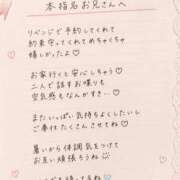 本指名お兄さんへ
リベンジで予約してくれて
約束守ってくれてめちゃくちゃ
嬉しかったよ♡
お家行くと安心しちゃう♡
二人で話すお喋りも
空気感もなんかすき…♡
またいっぱい気持ちよくしたいし
ご奉仕たくさんさせてね♡
暑いから体調気をつけて
お互い頑張ろうね